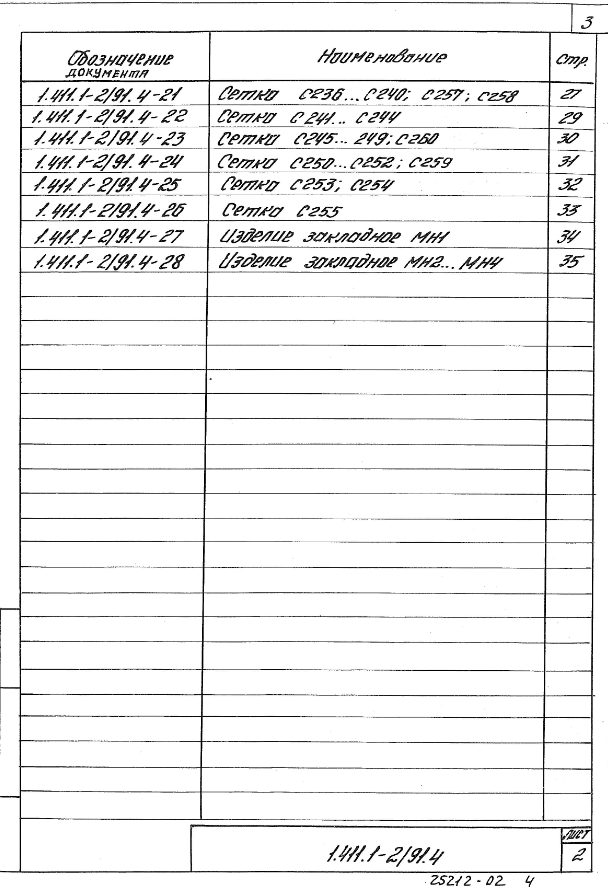 3
Обозначение документа Наименование Стр.
1.411.1-2/91.4-21 Сетка С236...С240; С257; С258 27
1.411.1-2/91.4-22 Сетка С241...С244 29
1.411.1-2/91.4-23 Сетка С245...249; С260 30
1.411.1-2/91.4-24 Сетка С250...С252; С259 31
1.411.1-2/91.4-25 Сетка С253; С254 32
1.411.1-2/91.4-26 Сетка С255 33
1.411.1-2/91.4-27 Изделие закладное МН1 34
1.411.1-2/91.4-28 Изделие закладное МН2...МН4 35
Лист
1.411.1-2/91.4 2
25212-02 4